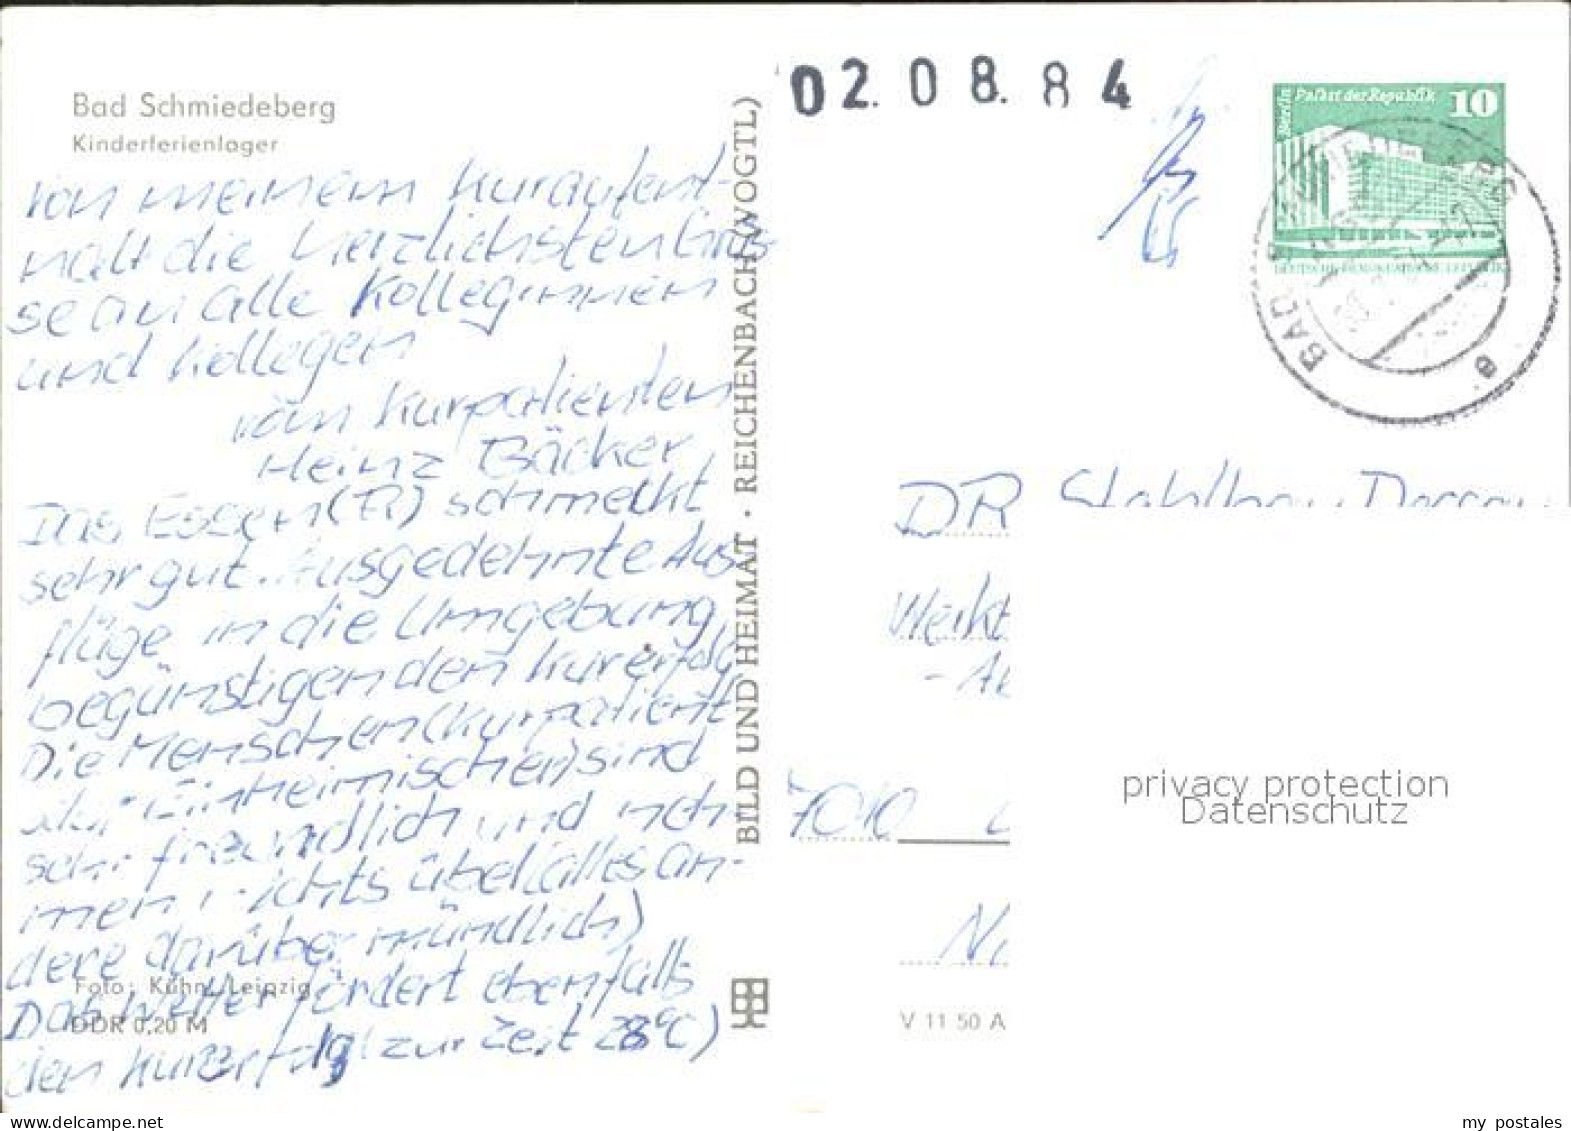 Bad Schmiedeberg
Kinderferienlager
von meinem Kuraufent-
halt die herzlichsten Grüs-
se an alle Kolleginnen
und Kollegen
vom Kurpatienten
Heinz Bäcker
Das Essen (EB) schmeckt
sehr gut. Ausgedehnte Aus-
flüge in die Umgebung
begünstigen den Kurerfolg
Die Menschen (Kurpatient
Einheimischen) sind
sehr freundlich und neh-
men nichts übel (alles an-
dere darüber mündlich)
Das Wetter fördert ebenfalls
den Kurerfolg (zur Zeit 28°C)
Foto: Kühn, Leipzig
DDR 0,20 M
BILD UND HEIMAT · REICHENBACH (VOGTL)
02.08.84
Berlin Palast der Republik 10
DEUTSCHE DEMOKRATISCHE REPUBLIK
BAD SCHMIEDEBERG
e
DR Stahlbau Dessau
Werkt
7010 L
Ni
V 11 50 A
privacy protection
Datenschutz
delcampe.net
my_postales